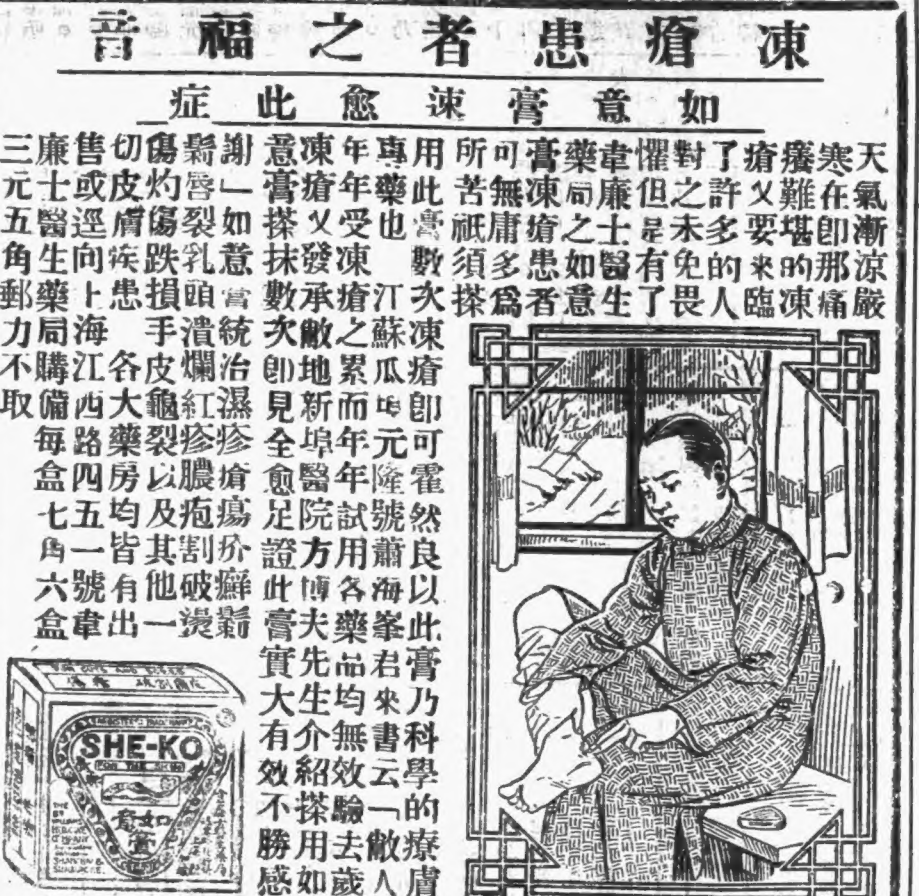 凍瘡患者之福音
如意膏速愈此症
天氣漸涼嚴
寒在卽那痛
癢難堪的凍
瘡又要來臨
了許多的人
對之未免畏
懼但是有了
韋廉士醫生
藥局之如意
膏凍瘡患者
可無庸多爲
所苦祇須搽
用此膏數次凍瘡卽可霍然良以此膏乃科學的療膚
專藥也 江蘇瓜埠元隆號蕭海峯君來書云「敝人
年年受凍瘡之累而年年試用各藥品均無效驗去歲
凍瘡又發承敝地新埠醫院方博夫先生介紹搽用如
意膏搽抹數次卽見全愈足證此膏實大有效不勝感
謝」如意膏統治濕疹瘡瘍疥癬鬎
鬁唇裂乳頭潰爛紅疹膿疱割破燙
傷灼傷跌損手皮龜裂以及其他一
切皮膚疾患 各大藥房均皆有出
售或逕向上海江西路四五一號韋
廉士醫生藥局購備每盒七角六盒
三元五角郵力不取
SHE-KO
FOR THE SKIN
如意膏